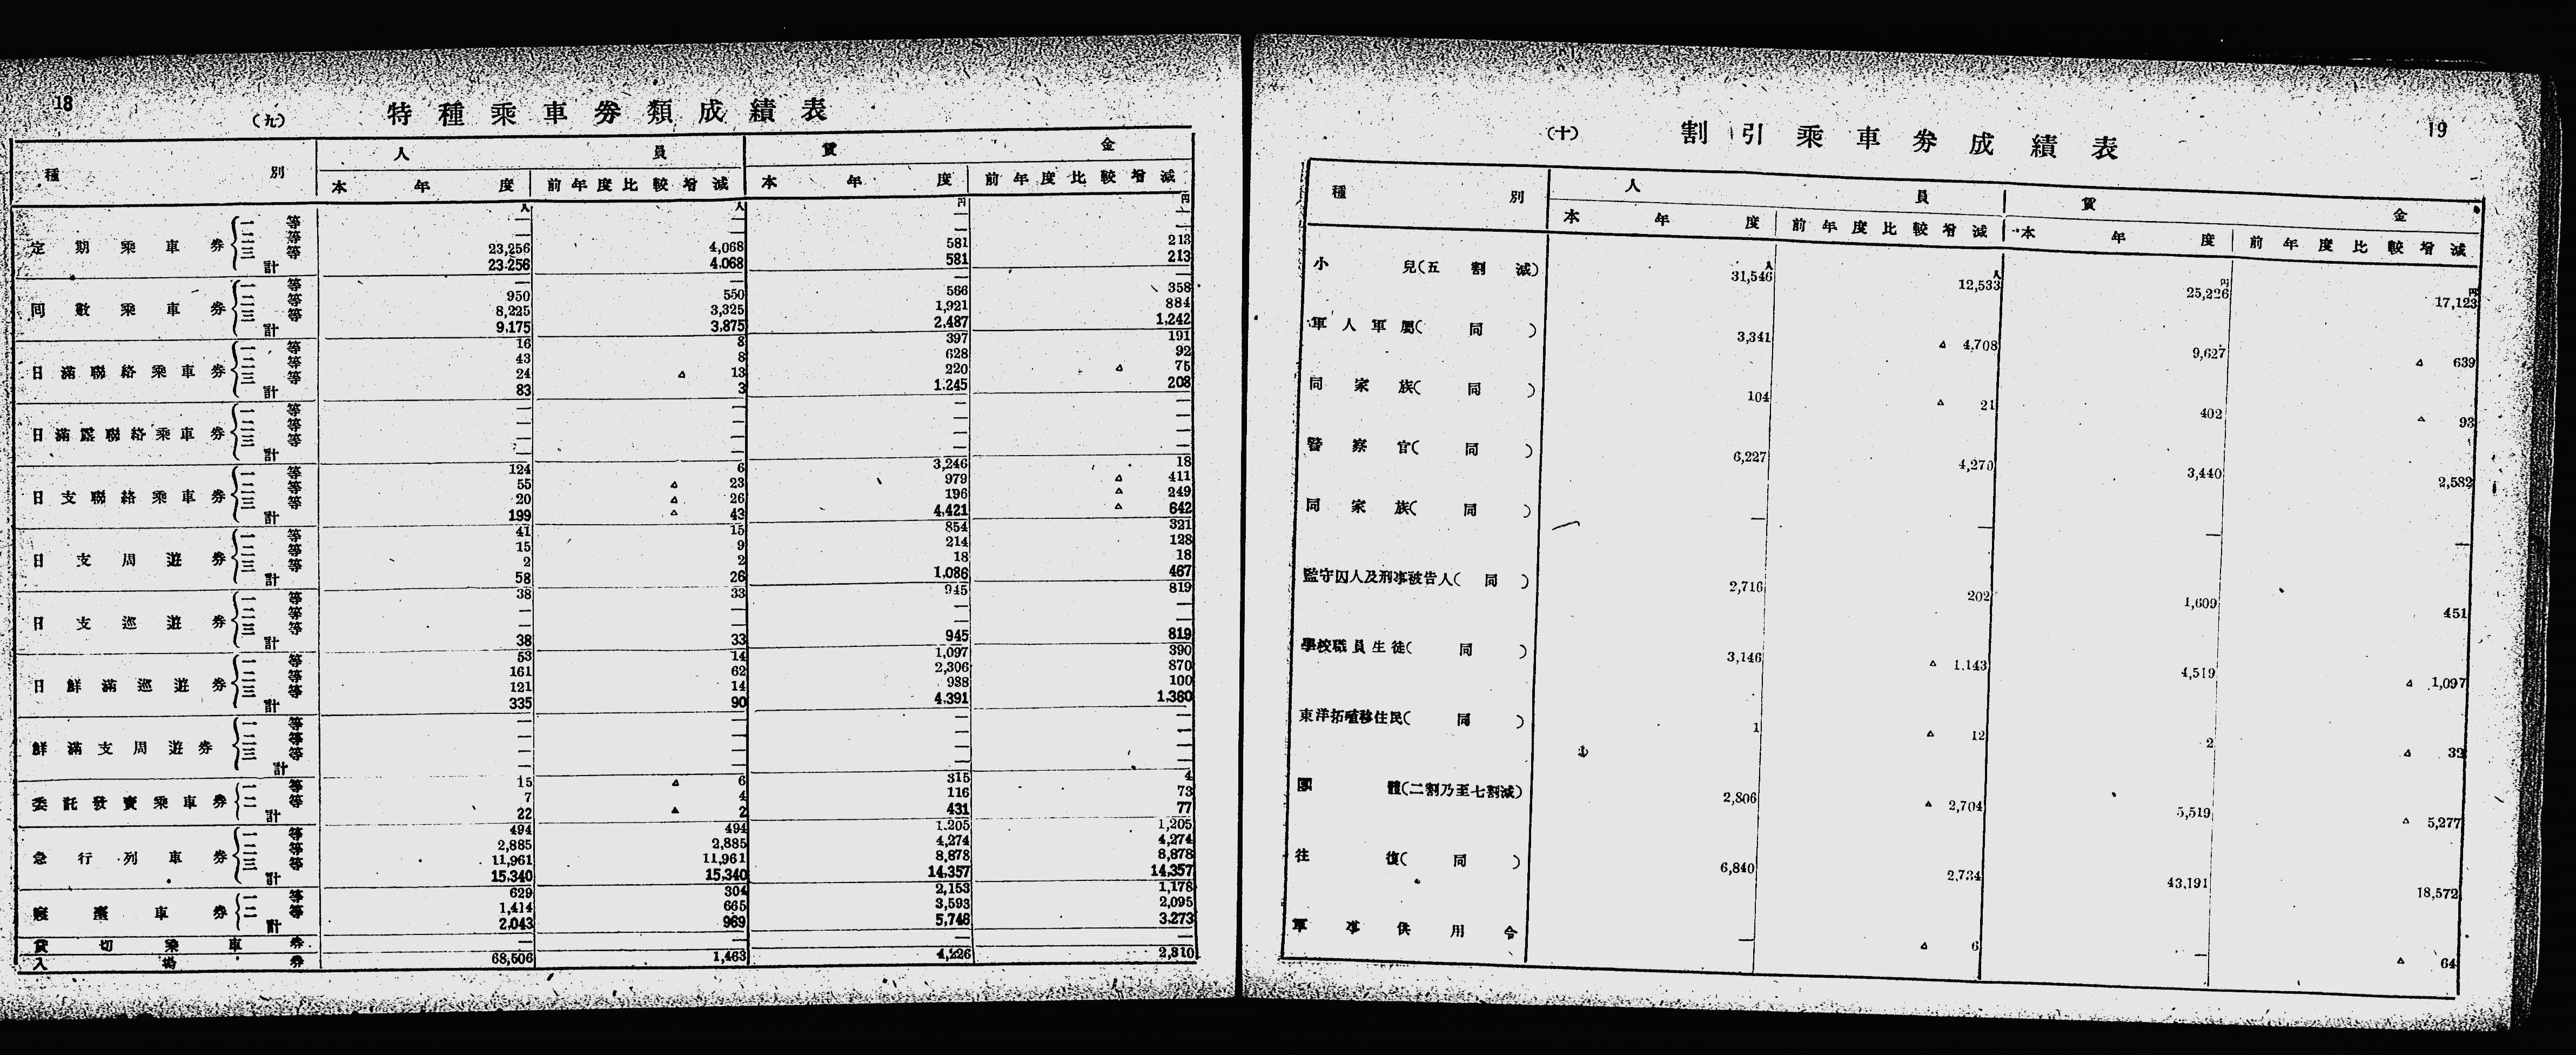 18
(九) 特種乘車券類成績表
種別 人員 賃金
本年度 前年度比較增減 本年度 前年度比較增減
人 人 円 円
定期乘車券 一等 — — — —
二等 — — — —
三等 23,256 4,068 581 213
計 23,256 4,068 581 213
回數乘車券 一等 — — — —
二等 950 550 566 358
三等 8,225 3,325 1,921 884
計 9,175 3,875 2,487 1,242
日滿聯絡乘車券 一等 16 8 397 191
二等 43 8 628 92
三等 24 △ 13 220 △ 75
計 83 3 1,245 208
日滿露聯絡乘車券 一等 — — — —
二等 — — — —
三等 — — — —
計 — — — —
日支聯絡乘車券 一等 124 6 3,246 18
二等 55 △ 23 979 △ 411
三等 20 △ 26 196 △ 249
計 199 △ 43 4,421 △ 642
日支周遊券 一等 41 15 854 321
二等 15 9 214 128
三等 2 2 18 18
計 58 26 1,086 467
日支巡遊券 一等 38 33 945 819
二等 — — — —
三等 — — — —
計 38 33 945 819
日鮮滿巡遊券 一等 53 14 1,097 390
二等 161 62 2,306 870
三等 121 14 988 100
計 335 90 4,391 1,360
鮮滿支周遊券 一等 — — — —
二等 — — — —
三等 — — — —
計 — — — —
委託發賣乘車券 一等 15 △ 6 315 4
二等 7 4 116 73
計 22 △ 2 431 77
急行列車券 一等 494 494 1,205 1,205
二等 2,885 2,885 4,274 4,274
三等 11,961 11,961 8,878 8,878
計 15,340 15,340 14,357 14,357
寢臺車券 一等 629 304 2,153 1,178
二等 1,414 665 3,593 2,095
計 2,043 969 5,746 3,273
貸切乘車券 — — — —
入場券 68,506 1,463 4,226 2,310
19
(十) 割引乘車券成績表
種別 人員 賃金
本年度 前年度比較增減 本年度 前年度比較增減
人 人 円 円
小兒(五割減) 31,546 12,533 25,226 17,123
軍人軍屬(同) 3,341 △ 4,708 9,627 △ 639
同家族(同) 104 △ 21 402 △ 93
警察官(同) 6,227 4,270 3,440 2,582
同家族(同) — — — —
監守囚人及刑事被告人(同) 2,716 202 1,609 451
學校職員生徒(同) 3,146 △ 1,143 4,519 △ 1,097
東洋拓殖移住民(同) 1 △ 12 2 △ 33
團體(二割乃至七割減) 2,806 △ 2,704 5,519 △ 5,277
往復(同) 6,840 2,734 43,191 18,572
軍事供用令 — △ 6 — △ 64